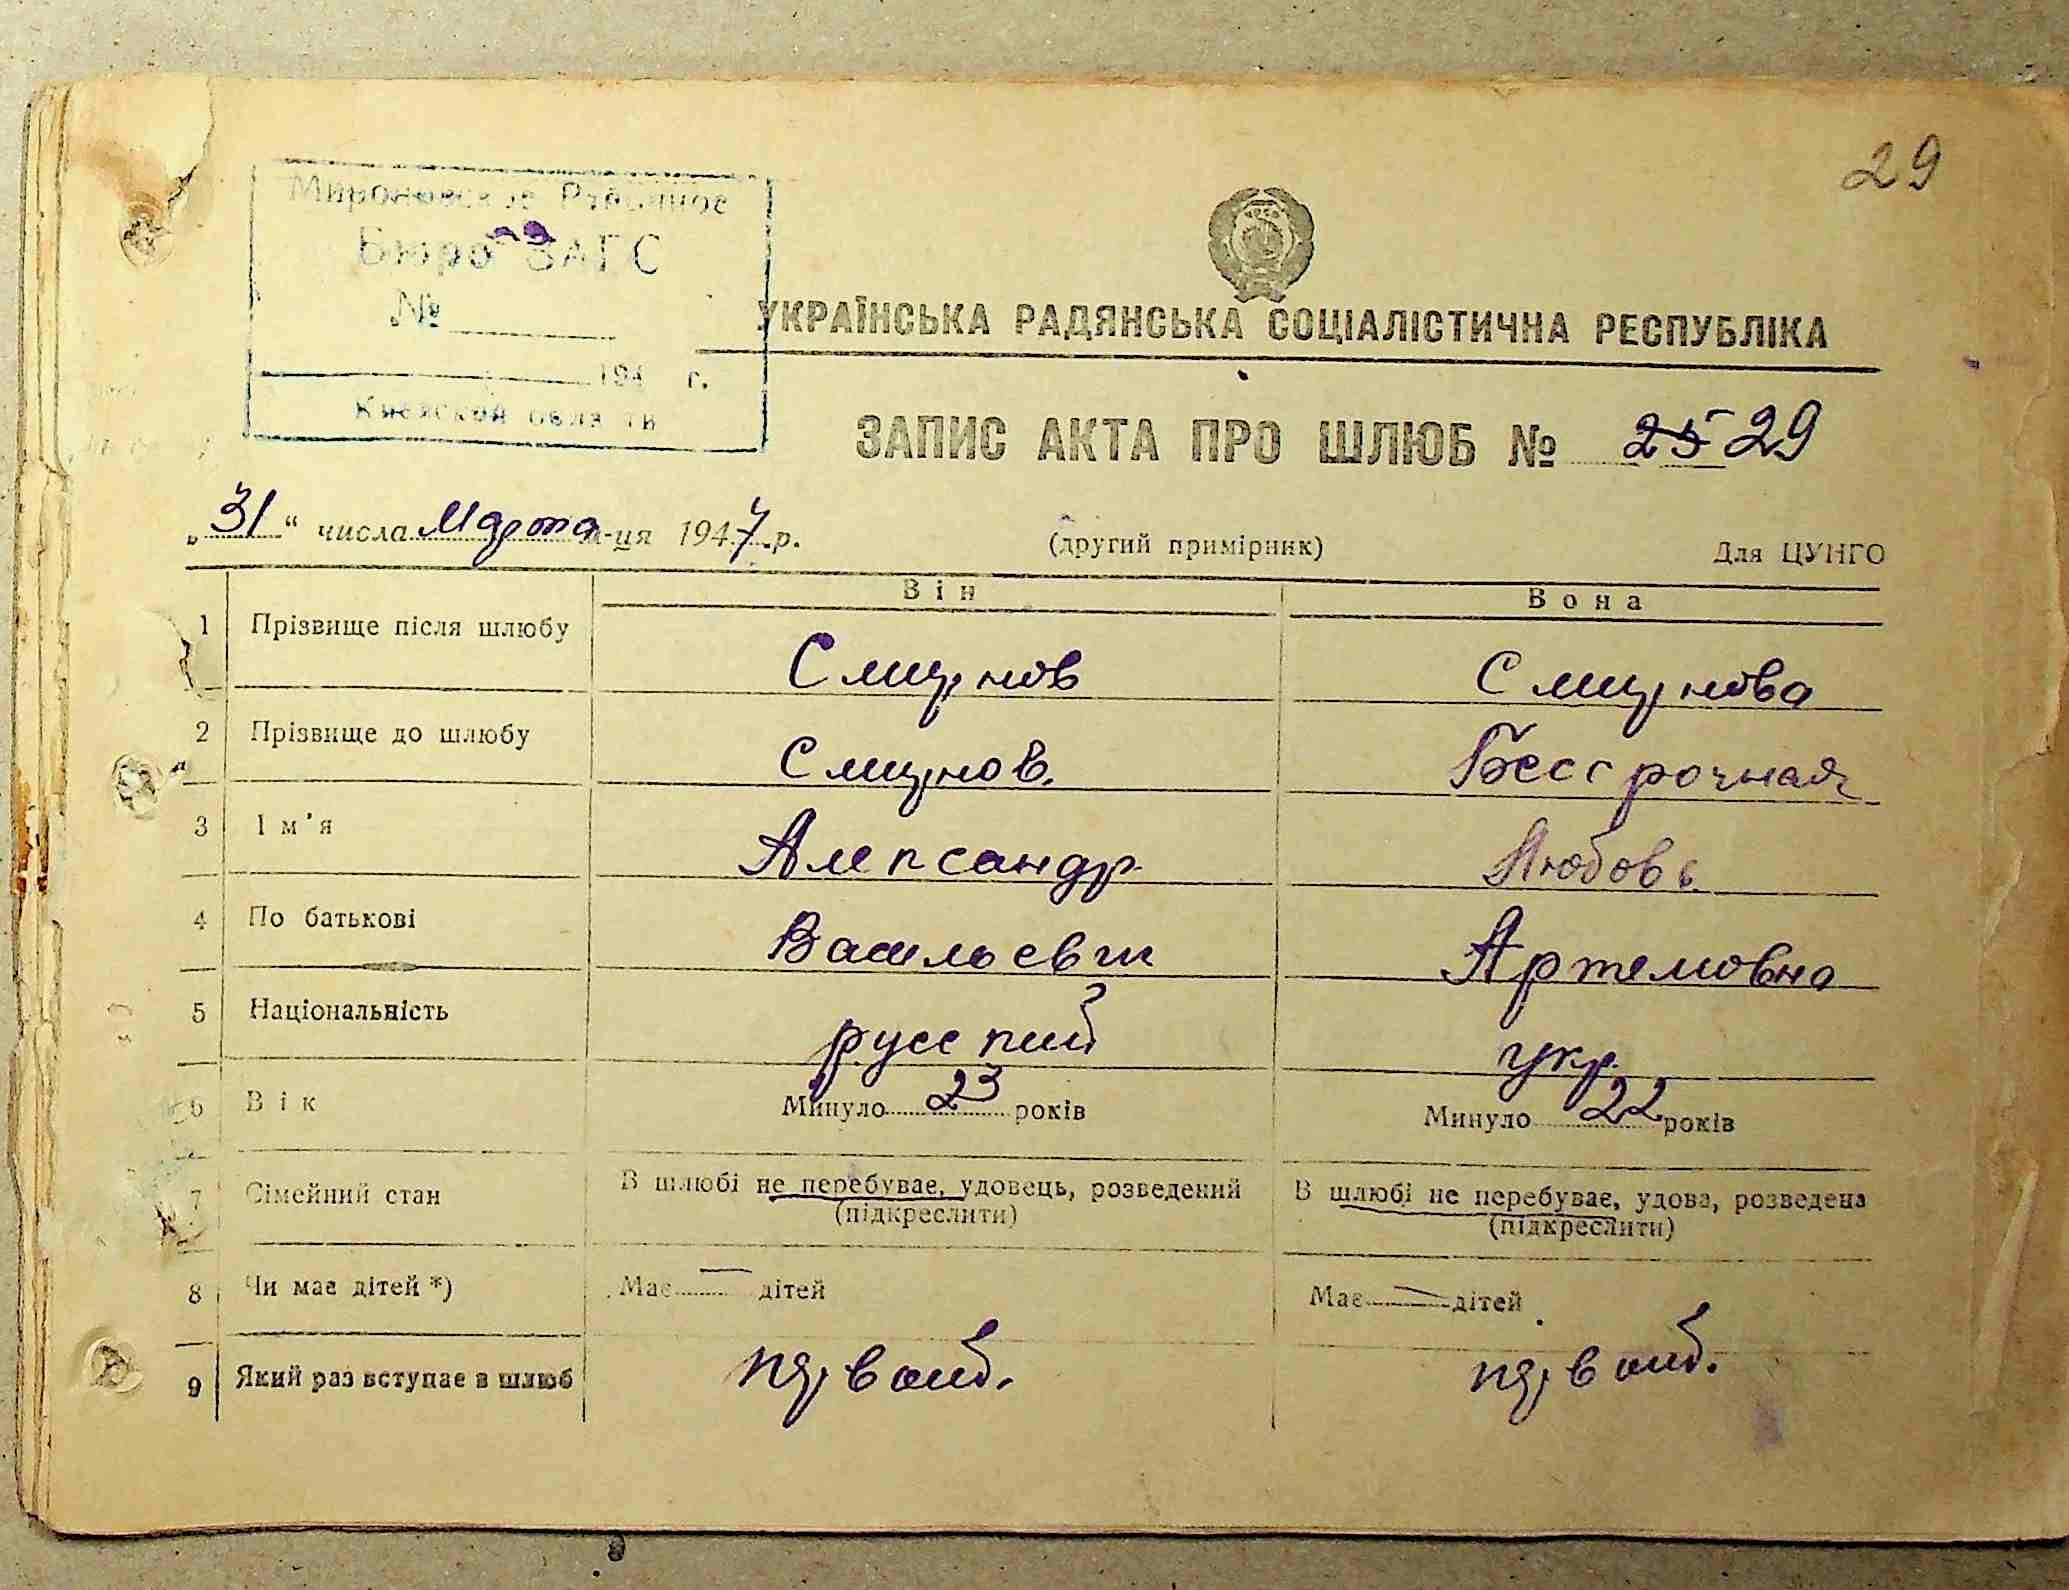 29
Мироновское Районное
Бюро ЗАГС
№
194 г.
Киевской области
УКРАЇНСЬКА РАДЯНСЬКА СОЦІАЛІСТИЧНА РЕСПУБЛІКА
ЗАПИС АКТА ПРО ШЛЮБ № 25 29
„31“ числа Марта м-ця 1947 р. (другий примірник) Для ЦУНГО
Він Вона
1 Прізвище після шлюбу Смирнов Смирнова
2 Прізвище до шлюбу Смирнов. Бессрочная
3 Ім'я Александр Любовь
4 По батькові Васильевич Артемовна
5 Національність русский укр.
6 Вік Минуло 23 років Минуло 22 років
7 Сімейний стан В шлюбі не перебуває, удовець, розведений В шлюбі не перебуває, удова, розведена
(підкреслити) (підкреслити)
8 Чи має дітей *) Має — дітей Має — дітей
9 Який раз вступає в шлюб первый. первый.